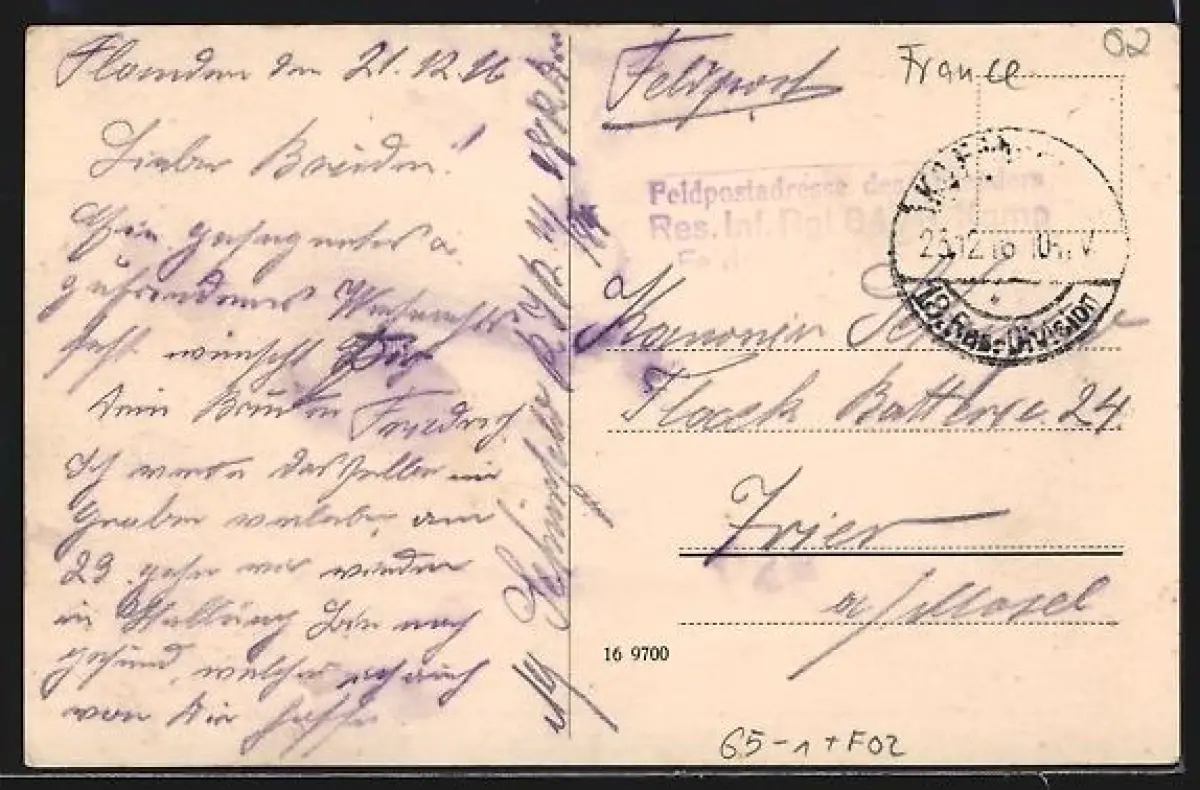 Flandern den 21.12.16
Lieber Bruder!
Ein gesegnetes u.
Weihnachts
fest wünscht Dir
Dein Bruder Friedrich.
Ich werde dasselbe im
Graben verleben am
23. gehen wir wieder
in Stellung Bin noch
gesund, welches ich auch
von Dir hoffe.
Feldpost
France
02
Feldpostadresse des
Res. Inf. Rgt. 84 Komp
23.12.16 10-11 V
18. Res.-Division
Kanonier
Flack Batterie 24.
Trier
a/Mosel
16 9700
65-1+F02